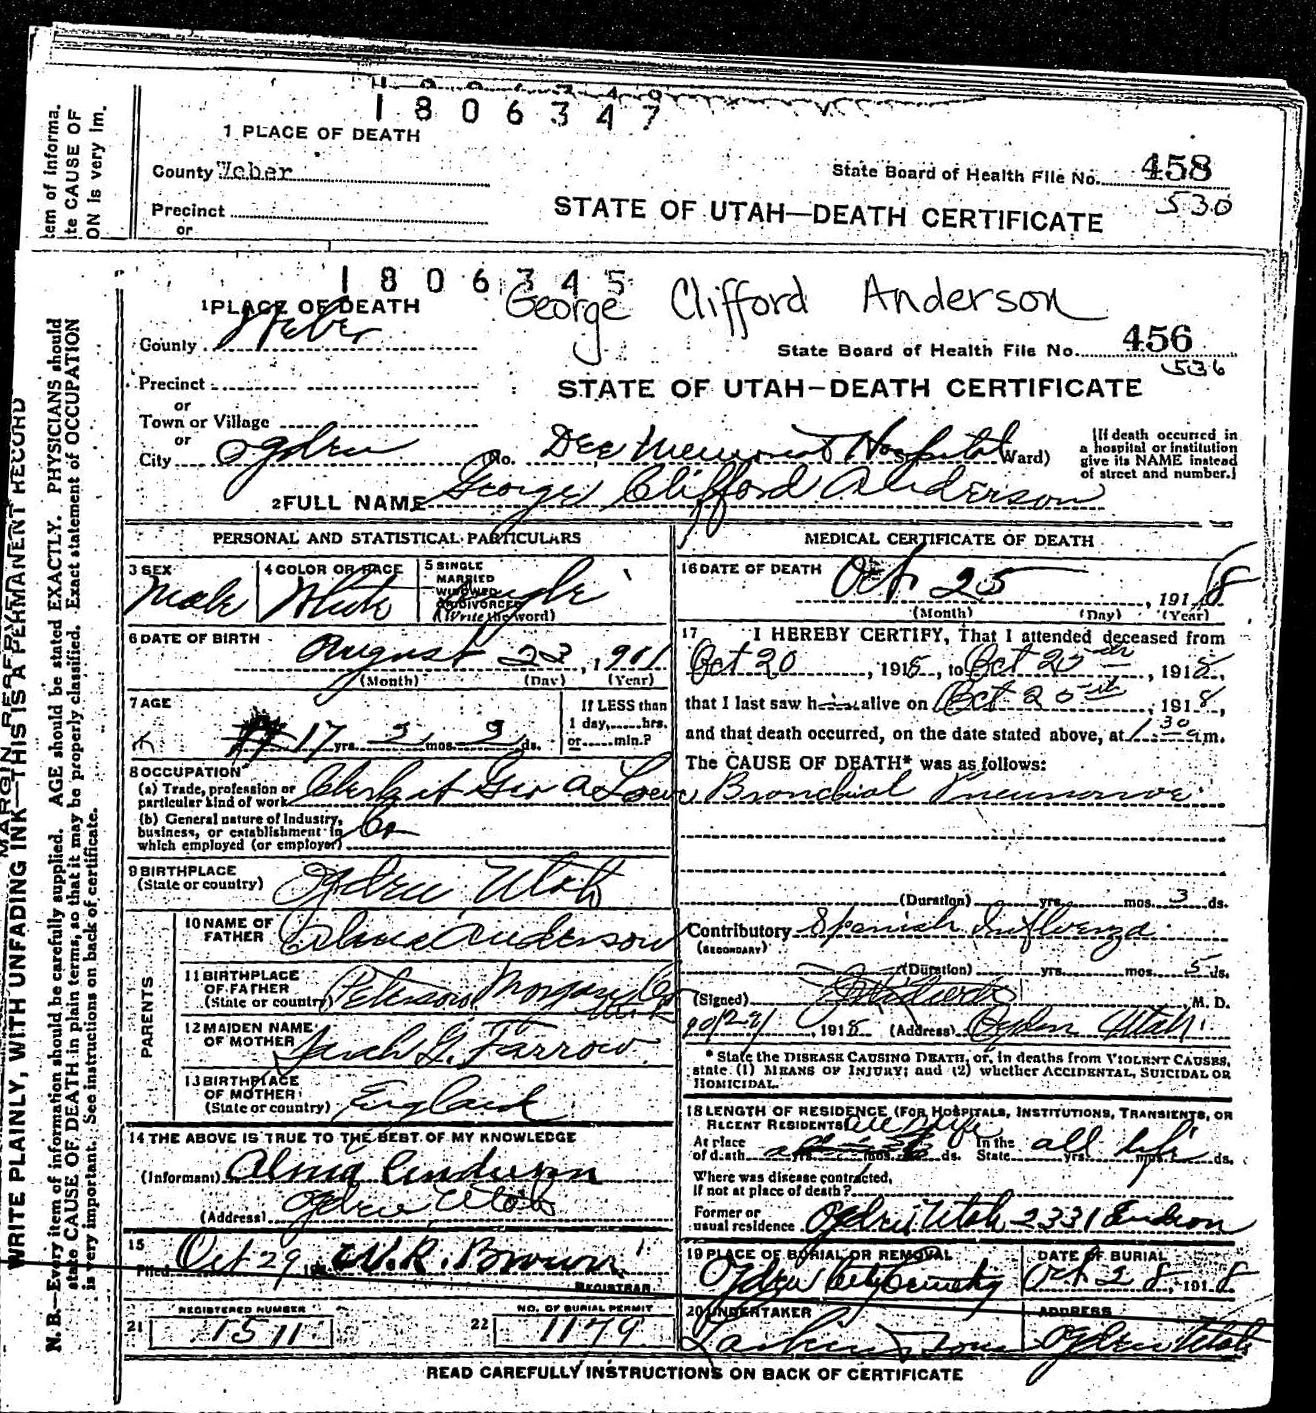 1806347
1 PLACE OF DEATH
County Weber
State Board of Health File No. 458
530
Precinct
or
STATE OF UTAH—DEATH CERTIFICATE
tem of Informa.
te CAUSE OF
ON is very im.
1806345
George Clifford Anderson
1 PLACE OF DEATH
County Weber
State Board of Health File No. 456
536
Precinct
or
STATE OF UTAH—DEATH CERTIFICATE
Town or Village
or
City Ogden No. Dee Memorial Hospital Ward)
[If death occurred in
a hospital or institution
give its NAME instead
of street and number.]
2 FULL NAME George Clifford Anderson
PERSONAL AND STATISTICAL PARTICULARS
3 SEX
Male
4 COLOR OR RACE
White
5 SINGLE
MARRIED
WIDOWED
OR DIVORCED
(Write the word)
Single
6 DATE OF BIRTH
August 23, 1901
(Month) (Day) (Year)
7 AGE
17 yrs. 2 mos. 2 ds.
If LESS than
1 day, hrs.
or min.?
8 OCCUPATION
(a) Trade, profession or
particular kind of work Clerk at Geo A Lowe
(b) General nature of Industry,
business, or establishment in
which employed (or employer) Co
9 BIRTHPLACE
(State or country) Ogden Utah
PARENTS
10 NAME OF
FATHER Alma Anderson
11 BIRTHPLACE
OF FATHER
(State or country) Peterson Morgan Co
12 MAIDEN NAME
OF MOTHER Sarah G. Farrow
13 BIRTHPLACE
OF MOTHER
(State or country) England
14 THE ABOVE IS TRUE TO THE BEST OF MY KNOWLEDGE
(Informant) Alma Anderson
(Address) Ogden Utah
15
Filed Oct 29 191 W.R. Brown
REGISTRAR
21 REGISTERED NUMBER
1511
22 NO. OF BURIAL PERMIT
1179
MEDICAL CERTIFICATE OF DEATH
16 DATE OF DEATH Oct 25, 1918
(Month) (Day) (Year)
17 I HEREBY CERTIFY, That I attended deceased from
Oct 20, 1918, to Oct 25th, 1918,
that I last saw h alive on Oct 25th, 1918,
and that death occurred, on the date stated above, at 1:30 a m.
The CAUSE OF DEATH* was as follows:
Bronchial Pneumonia
(Duration) yrs. mos. 3 ds.
Contributory Spanish Influenza
(SECONDARY)
(Duration) yrs. mos. 5 ds.
(Signed) M. D.
1918 (Address) Ogden Utah
* State the DISEASE CAUSING DEATH, or, in deaths from VIOLENT CAUSES,
state (1) MEANS OF INJURY; and (2) whether ACCIDENTAL, SUICIDAL OR
HOMICIDAL.
18 LENGTH OF RESIDENCE (FOR HOSPITALS, INSTITUTIONS, TRANSIENTS, OR
RECENT RESIDENTS) all life
At place
of death yrs. mos. ds. In the
State all life yrs. ds.
Where was disease contracted,
if not at place of death?
Former or
usual residence Ogden Utah 2331
19 PLACE OF BURIAL OR REMOVAL
Ogden City Cemetery
DATE OF BURIAL
Oct 28, 1918
20 UNDERTAKER
Larkin Sons
ADDRESS
Ogden Utah
READ CAREFULLY INSTRUCTIONS ON BACK OF CERTIFICATE
WRITE PLAINLY, WITH UNFADING INK—THIS IS A PERMANENT RECORD
N. B.—Every item of information should be carefully supplied. AGE should be stated EXACTLY. PHYSICIANS should
state CAUSE OF DEATH in plain terms, so that it may be properly classified. Exact statement of OCCUPATION
is very important. See instructions on back of certificate.